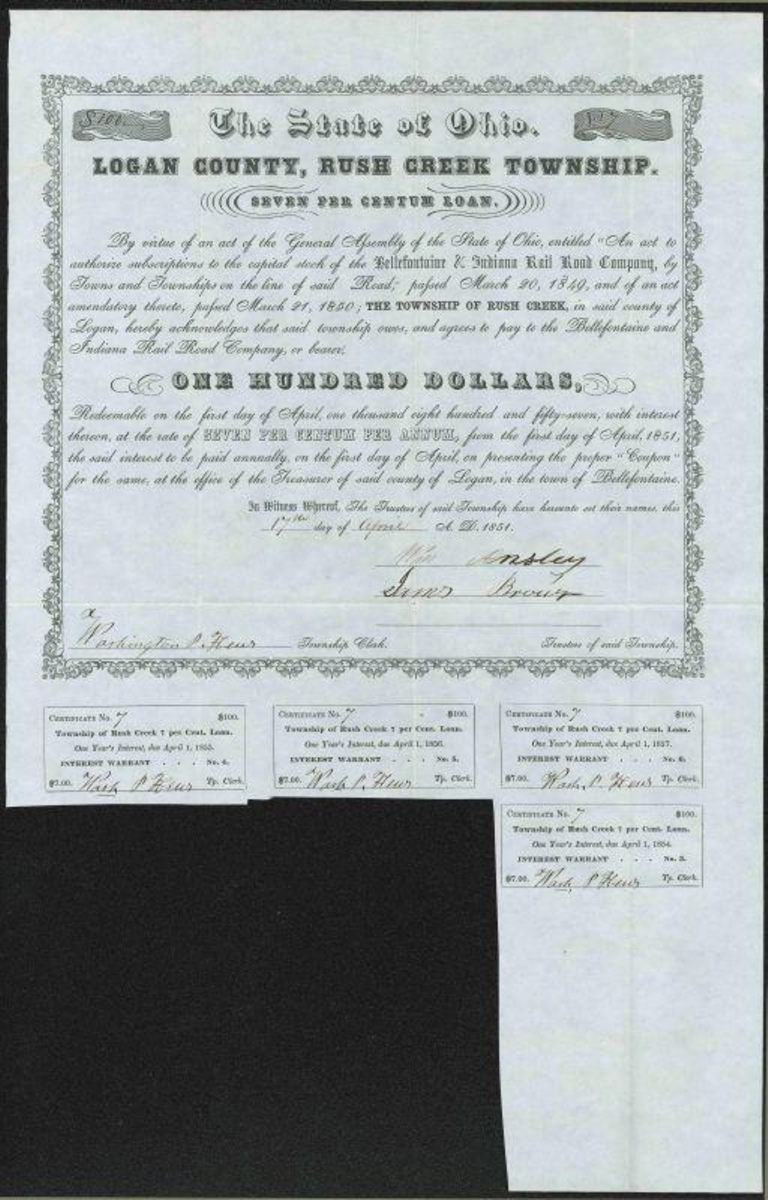 $100
The State of Ohio.
LOGAN COUNTY, RUSH CREEK TOWNSHIP.
SEVEN PER CENTUM LOAN.
By virtue of an act of the General Assembly of the State of Ohio, entitled "An act to
authorize subscriptions to the capital stock of the Bellefontaine & Indiana Rail Road Company, by
Towns and Townships on the line of said Road," passed March 20, 1849, and of an act
amendatory thereto, passed March 21, 1850; THE TOWNSHIP OF RUSH CREEK, in said county of
Logan, hereby acknowledges that said township owes, and agrees to pay to the Bellefontaine and
Indiana Rail Road Company, or bearer,
ONE HUNDRED DOLLARS,
Redeemable on the first day of April, one thousand eight hundred and fifty-seven, with interest
thereon, at the rate of SEVEN PER CENTUM PER ANNUM, from the first day of April, 1851,
the said interest to be paid annually, on the first day of April, on presenting the proper "Coupon"
for the same, at the office of the Treasurer of said county of Logan, in the town of Bellefontaine.
In Witness Whereof, The Trustees of said Township have hereunto set their names, this
17th day of April A. D. 1851.
Wm Ansley
Brown
Washington P. Township Clerk. Trustees of said Township.
CERTIFICATE No. 7 $100.
Township of Rush Creek 7 per Cent. Loan.
One Year's Interest, due April 1, 1855.
INTEREST WARRANT . . . No. 4.
$7.00. Wash P. Tp. Clerk.
CERTIFICATE No. 7 $100.
Township of Rush Creek 7 per Cent. Loan.
One Year's Interest, due April 1, 1856.
INTEREST WARRANT . . . No. 5.
$7.00. Wash P. Tp. Clerk.
CERTIFICATE No. 7 $100.
Township of Rush Creek 7 per Cent. Loan.
One Year's Interest, due April 1, 1857.
INTEREST WARRANT . . . No. 6.
$7.00. Wash. P. Tp. Clerk.
CERTIFICATE No. 7 $100.
Township of Rush Creek 7 per Cent. Loan.
One Year's Interest, due April 1, 1854.
INTEREST WARRANT . . . No. 3.
$7.00. Wash. P Tp. Clerk.